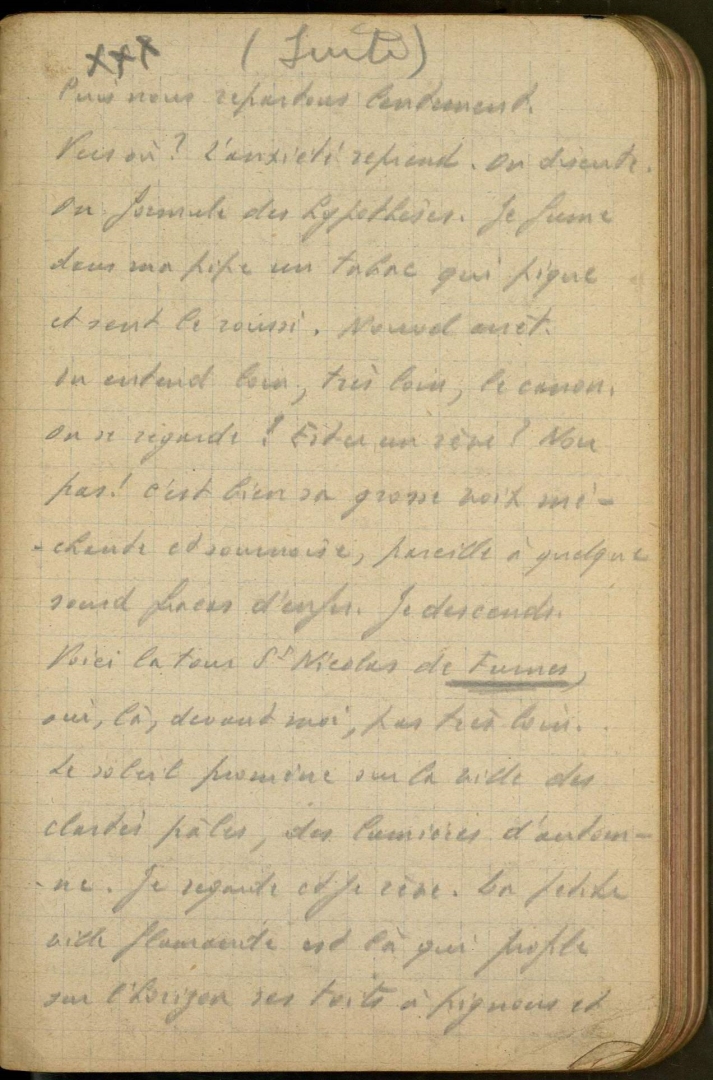 xxx (Suite)
Puis nous repartons lentement.
Vers où ? L'anxiété reprend. On discute.
On formule des hypothèses. Je fume
dans ma pipe un tabac qui pique
et sent le roussi. Nouvel arrêt.
On entend loin, très loin, le canon.
On se regarde ! Est-ce un rêve ? Non
pas ! c'est bien sa grosse voix mé-
-chante et sournoise, pareille à quelque
sourd fracas d'enfer. Je descends.
Voici la tour St Nicolas de Furnes,
oui, là, devant moi, pas très loin.
Le soleil promène sur la ville des
clartés pâles, des lumières d'autom-
-ne. Je regarde et je rêve. La petite
ville flamande est là qui profile
sur l'horizon ses toits à pignons et